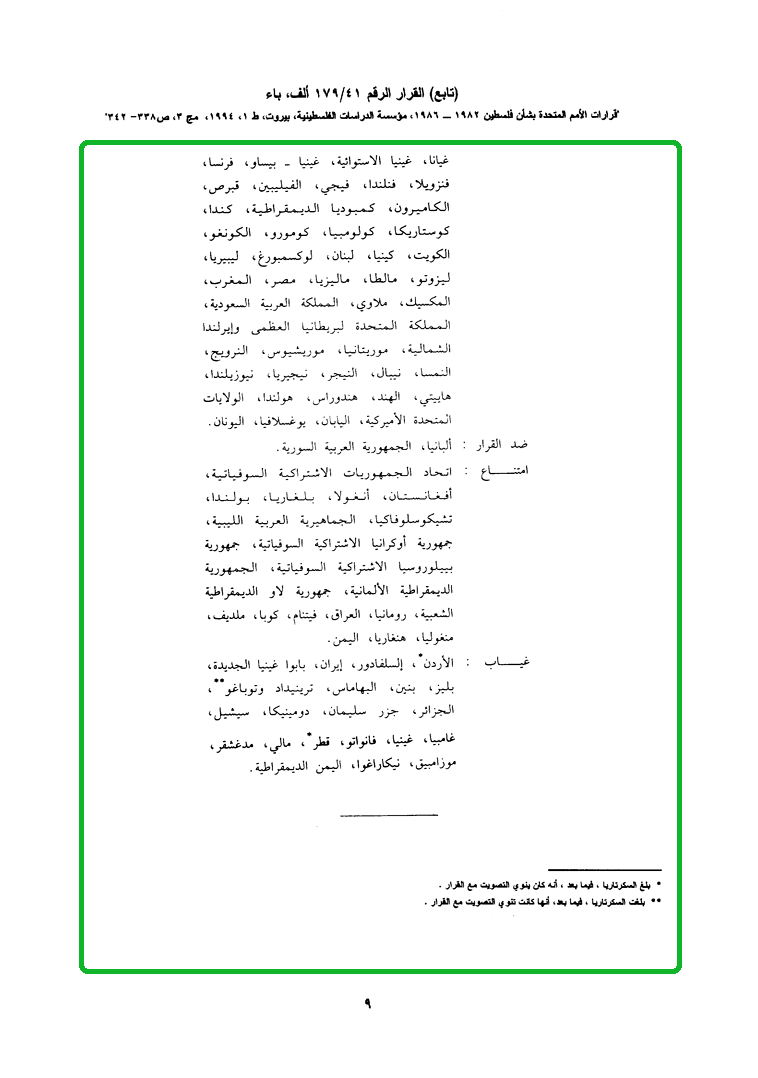 (تابع) القرار الرقم ١٧٩/٤١ ألف، باء
"قرارات الأمم المتحدة بشأن فلسطين ١٩٨٢ ـــ ١٩٨٦، مؤسسة الدراسات الفلسطينية، بيروت، ط ١، ١٩٩٤، مج ٣، ص٣٣٨– ٣٤٢"
غيانا، غينيا الاستوائية، غينيا ـ بيساو، فرنسا،
فنزويلا، فنلندا، فيجي، الفيليبين، قبرص،
الكاميرون، كمبوديا الديمقراطية، كندا،
كوستاريكا، كولومبيا، كومورو، الكونغو،
الكويت، كينيا، لبنان، لوكسمبورغ، ليبيريا،
ليزوتو، مالطا، ماليزيا، مصر، المغرب،
المكسيك، ملاوي، المملكة العربية السعودية،
المملكة المتحدة لبريطانيا العظمى وإيرلندا
الشمالية، موريتانيا، موريشيوس، النرويج،
النمسا، نيبال، النيجر، نيجيريا، نيوزيلندا،
هاييتي، الهند، هندوراس، هولندا، الولايات
المتحدة الأميركية، اليابان، يوغسلافيا، اليونان.
ضد القرار : ألبانيا، الجمهورية العربية السورية.
امتنـــــاع : اتحاد الجمهوريات الاشتراكية السوفياتية،
أفغانستان، أنغولا، بلغاريا، بولندا،
تشيكوسلوفاكيا، الجماهيرية العربية الليبية،
جمهورية أوكرانيا الاشتراكية السوفياتية، جمهورية
بييلوروسيا الاشتراكية السوفياتية، الجمهورية
الديمقراطية الألمانية، جمهورية لاو الديمقراطية
الشعبية، رومانيا، العراق، فيتنام، كوبا، ملديف،
منغوليا، هنغاريا، اليمن.
غيـــــاب : الأردن*، إلسلفادور، إيران، بابوا غينيا الجديدة،
بليز، بنين، البهاماس، ترينيداد وتوباغو**،
الجزائر، جزر سليمان، دومينيكا، سيشيل،
غامبيا، غينيا، فانواتو، قطر*، مالي، مدغشقر،
موزامبيق، نيكاراغوا، اليمن الديمقراطية.
* بلغ السكرتاريا ، فيما بعد ، أنه كان ينوي التصويت مع القرار .
** بلغت السكرتاريا ، فيما بعد، أنها كانت تنوي التصويت مع القرار .
٩